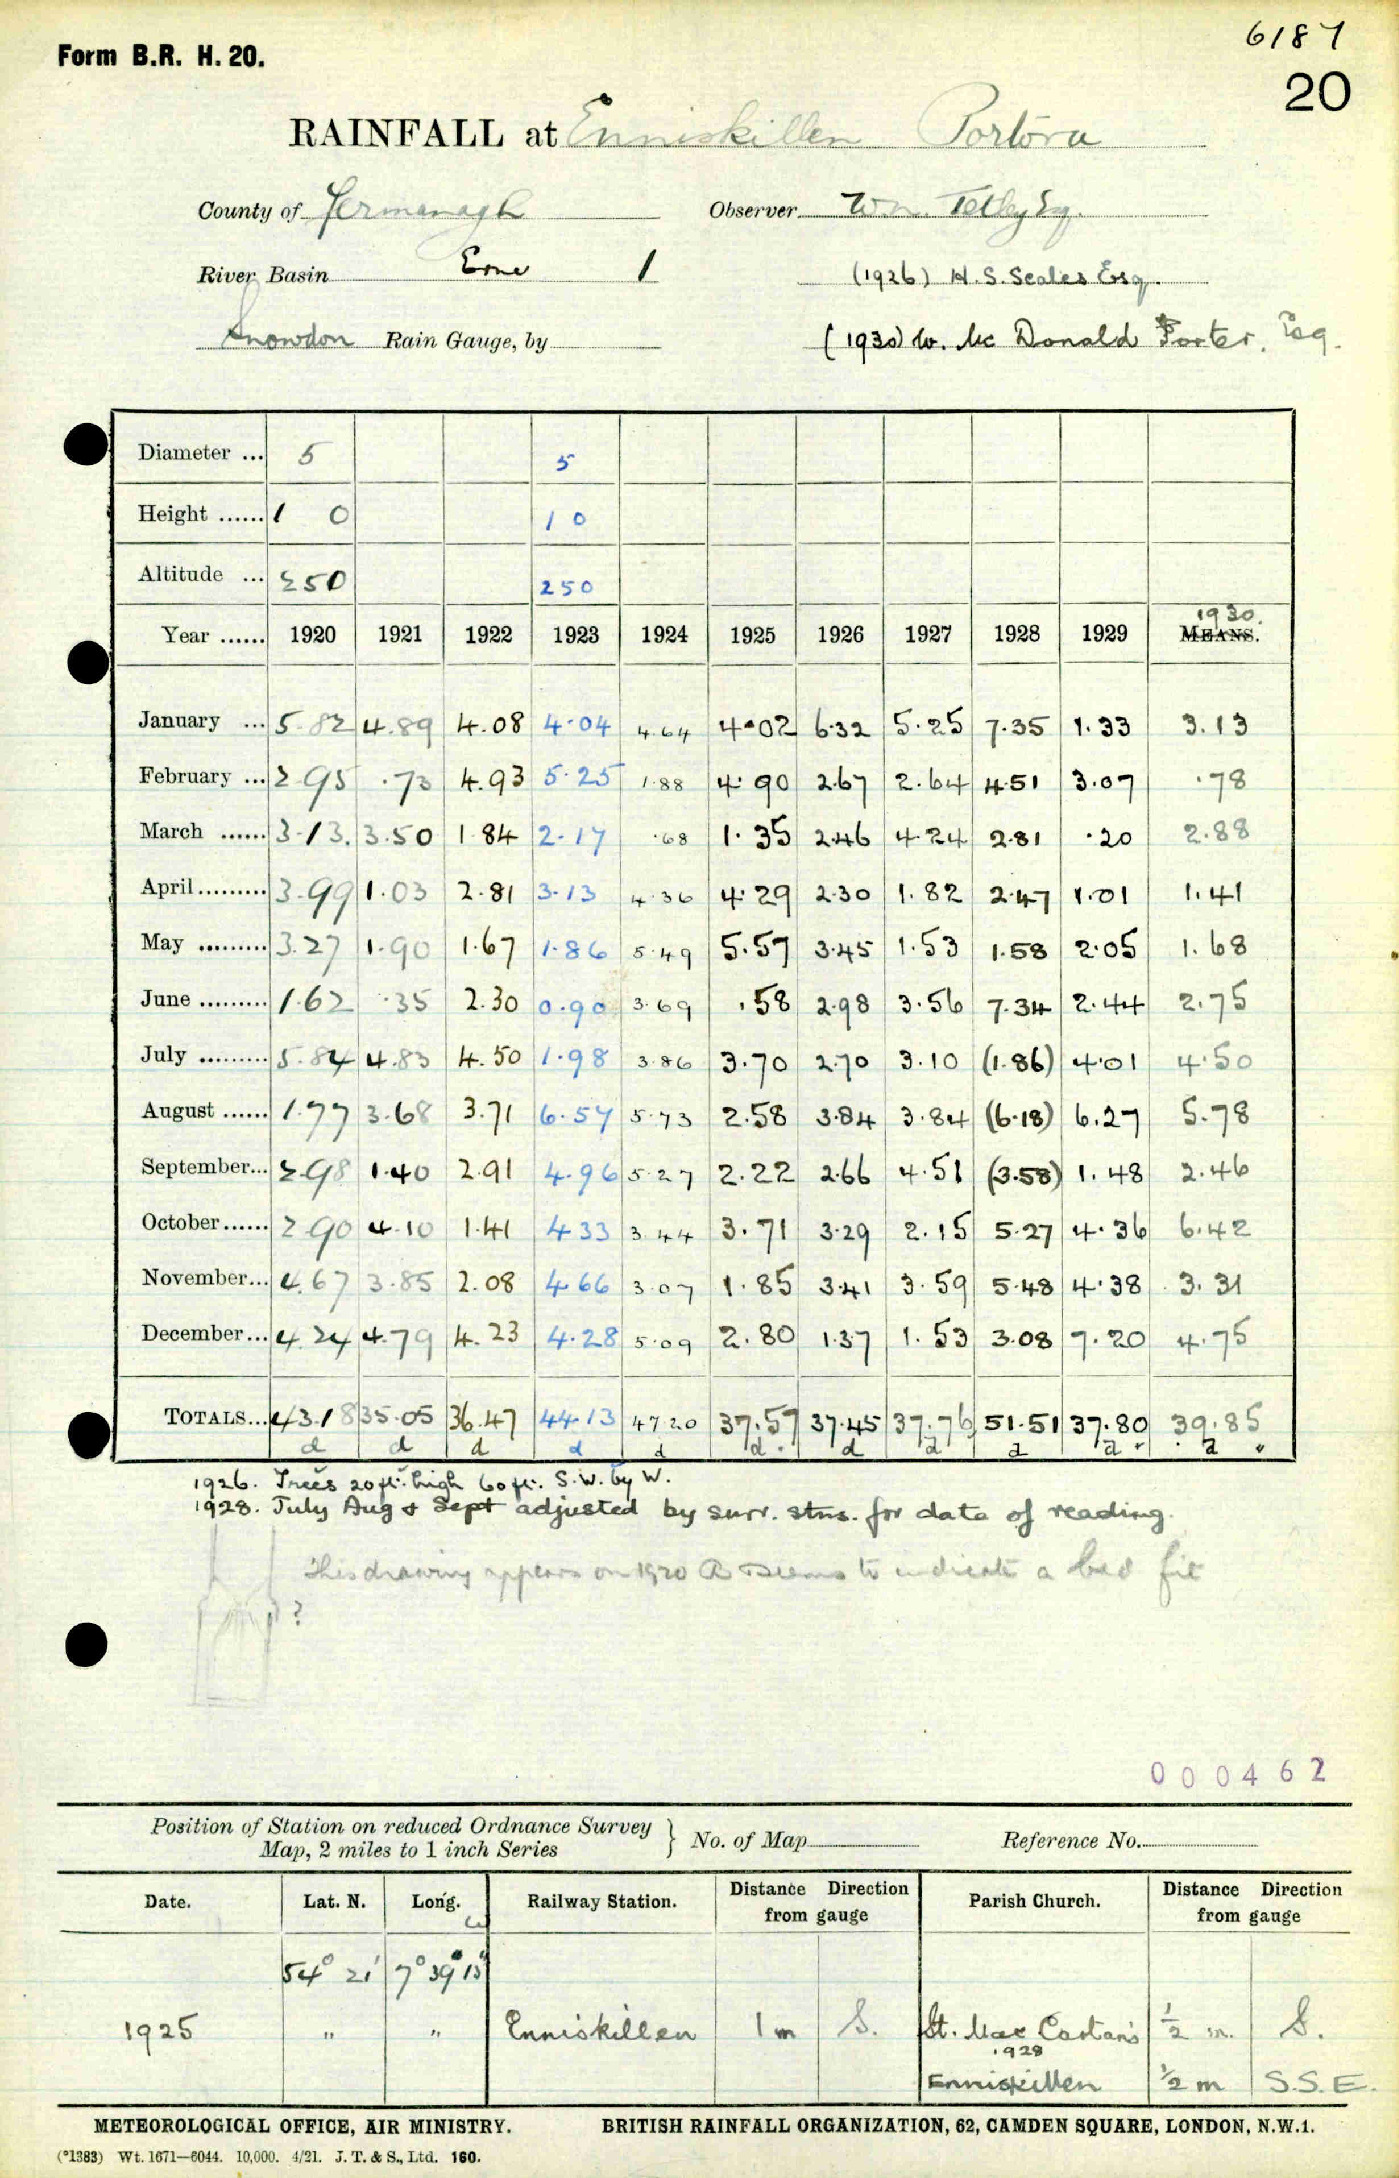 6187
Form B.R. H. 20.
20
RAINFALL at Enniskillen Portora
County of Fermanagh Observer Wm. Tetley Esq.
River Basin Erne 1 (1926) H. S. Scales Esq.
Snowdon Rain Gauge, by (1930) W. Mc Donald Porter, Esq.
Diameter ... 5 5
Height ...... 1 0 1 0
Altitude ... 250 250
1930.
Year ...... 1920 1921 1922 1923 1924 1925 1926 1927 1928 1929 MEANS.
January ... 5.82 4.89 4.08 4.04 4.64 4.02 6.32 5.25 7.35 1.33 3.13
February ... 2.95 .73 4.93 5.25 1.88 4.90 2.67 2.64 4.51 3.07 .78
March ...... 3.13. 3.50 1.84 2.17 .68 1.35 2.46 4.24 2.81 .20 2.88
April......... 3.99 1.03 2.81 3.13 4.36 4.29 2.30 1.82 2.47 1.01 1.41
May ......... 3.27 1.90 1.67 1.86 5.49 5.57 3.45 1.53 1.58 2.05 1.68
June ......... 1.62 .35 2.30 0.90 3.69 .58 2.98 3.56 7.34 2.44 2.75
July ......... 5.84 4.83 4.50 1.98 3.86 3.70 2.70 3.10 (1.86) 4.01 4.50
August ...... 1.77 3.68 3.71 6.57 5.73 2.58 3.84 3.84 (6.18) 6.27 5.78
September... 2.98 1.40 2.91 4.96 5.27 2.22 2.66 4.51 (3.58) 1.48 2.46
October...... 2.90 4.10 1.41 4.33 3.44 3.71 3.29 2.15 5.27 4.36 6.42
November... 4.67 3.85 2.08 4.66 3.07 1.85 3.41 3.59 5.48 4.38 3.31
December... 4.24 4.79 4.23 4.28 5.09 2.80 1.37 1.53 3.08 7.20 4.75
TOTALS... 43.18 35.05 36.47 44.13 47.20 37.57 37.45 37.76 51.51 37.80 39.85
d d d d d d. d d d d. d.
1926. Trees 20 ft. high 60 ft. S.W. by W.
1928. July Aug & Sept adjusted by surr. stns. for date of reading.
This drawing appears on 1920 seems to indicate a bad fit
?
000462
Position of Station on reduced Ordnance Survey
Map, 2 miles to 1 inch Series } No. of Map Reference No.
Date. Lat. N. Long. W Railway Station. Distance Direction from gauge Parish Church. Distance Direction from gauge
54° 21' 7° 39' 15"
1925 " " Enniskillen 1 m S. St. Mac Cartan's ½ m. S.
1928
Enniskillen ½ m S.S.E.
METEOROLOGICAL OFFICE, AIR MINISTRY. BRITISH RAINFALL ORGANIZATION, 62, CAMDEN SQUARE, LONDON, N.W.1.
(*1383) Wt. 1671—6044. 10,000. 4/21. J. T. & S., Ltd. 160.